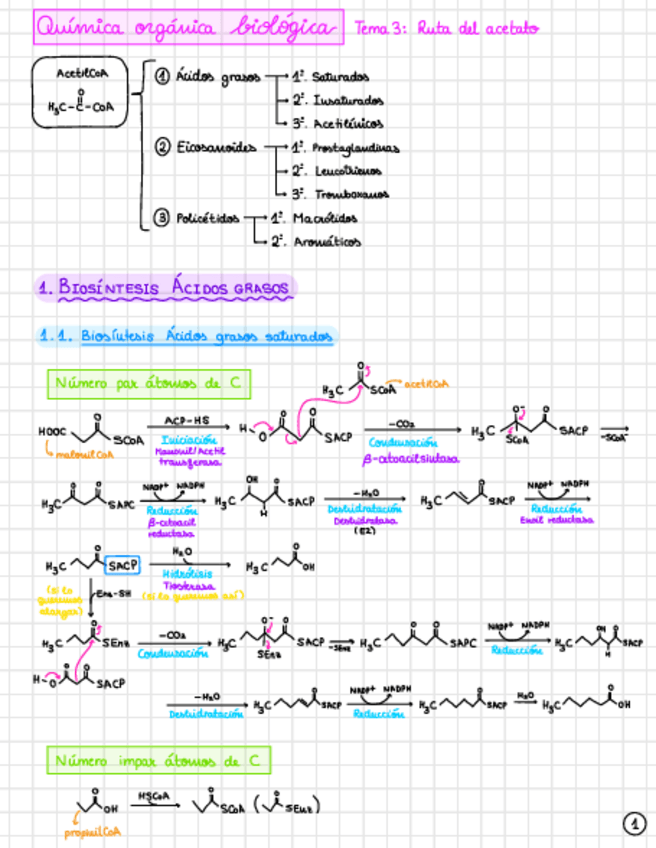 Química orgánica biológica Tema 3: Ruta del acetato
AcetilCoA
H₃C-C-CoA
O
① Ácidos grasos
1º. Saturados
2º. Insaturados
3º. Acetilénicos
② Eicosanoides
1º. Prostaglandinas
2º. Leucotrienos
3º. Tromboxanos
③ Policétidos
1º. Macrólidos
2º. Aromáticos
1. BIOSÍNTESIS ÁCIDOS GRASOS
1.1. Biosíntesis Ácidos grasos saturados
Número par átomos de C
H₃C SCoA acetilCoA
HOOC SCoA ACP-HS H O SACP -CO₂ H₃C O⁻ SCoA SACP -SCoA⁻
malonilCoA
Iniciación
Malonil/Acetil
transferasa
Condensación
β-cetoacilsintasa
H₃C SAPC NADP⁺ NADPH H₃C OH H SACP -H₂O H₃C SACP NADP⁺ NADPH
Reducción
β-cetoacil
reductasa
Deshidratación
Deshidratasa
(E2)
Reducción
Enoil reductasa
H₃C SACP H₂O H₃C OH
Hidrólisis
Tioesterasa
(si lo queremos así)
(si lo
queremos
alargar)
Enz-SH
H₃C SEnz -CO₂ H₃C O⁻ SEnz SACP -SEnz H₃C SAPC NADP⁺ NADPH H₃C OH H SACP
Condensación
Reducción
H-O SACP
-H₂O H₃C SACP NADP⁺ NADPH H₃C SACP H₂O H₃C OH
Deshidratación
Reducción
Número impar átomos de C
OH HSCoA SCoA ( SEnz)
propilCoA
①